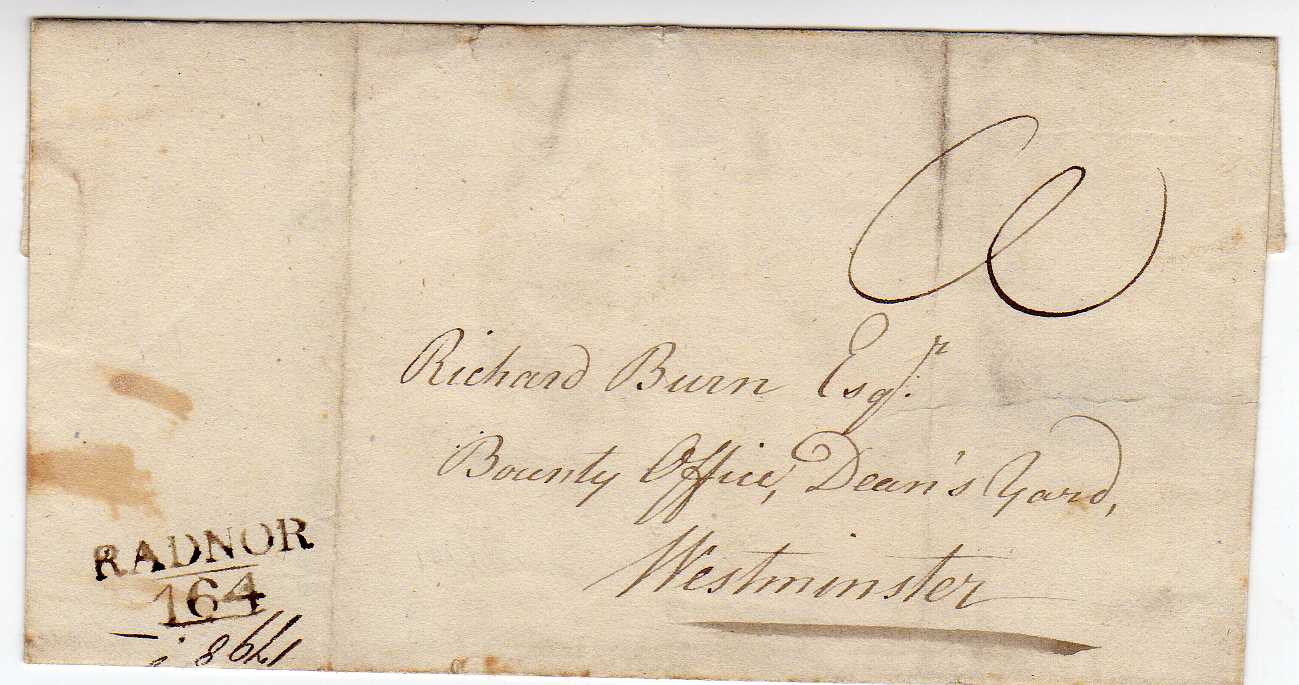 Richard Burn Esqr.
Bounty Office, Dean's Yard,
Westminster
RADNOR
164
1798